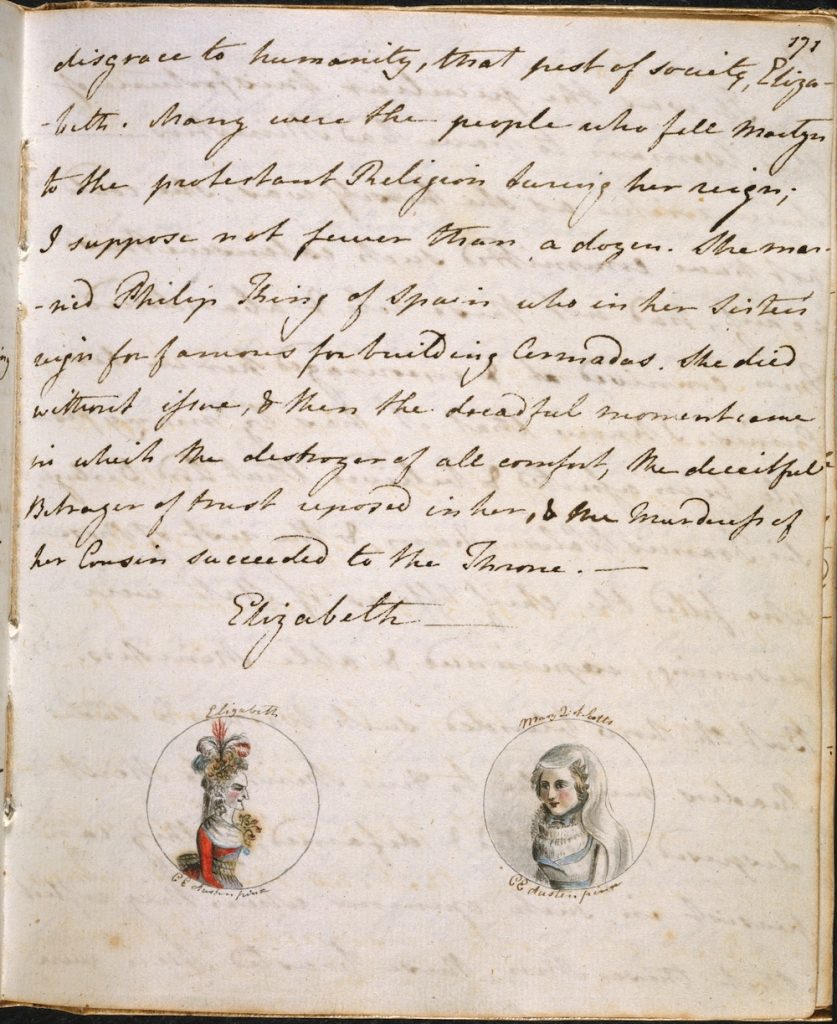 171
disgrace to humanity, that pest of society, Eliza-
-beth. Many were the people who fell Martyrs
to the protestant Religion during her reign;
I suppose not fewer than a dozen. She mar-
-ried Philip King of Spain who in her Sister's
reign for famous for building Armadas. She died
without issue, & then the dreadful moment came
in which the destroyer of all comfort, the deceitful
Betrayer of trust reposed in her, & the Murderess of
her Cousin succeeded to the Throne. —
Elizabeth —
Elizabeth
Mary Q. of Scots
CE Austen pinx
CE Austen pinx